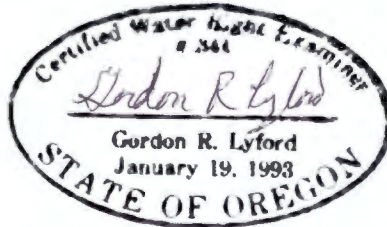 Certified Water Right Examiner
# 344
Gordon R Lyford
Gordon R. Lyford
January 19. 1993
STATE OF OREGON